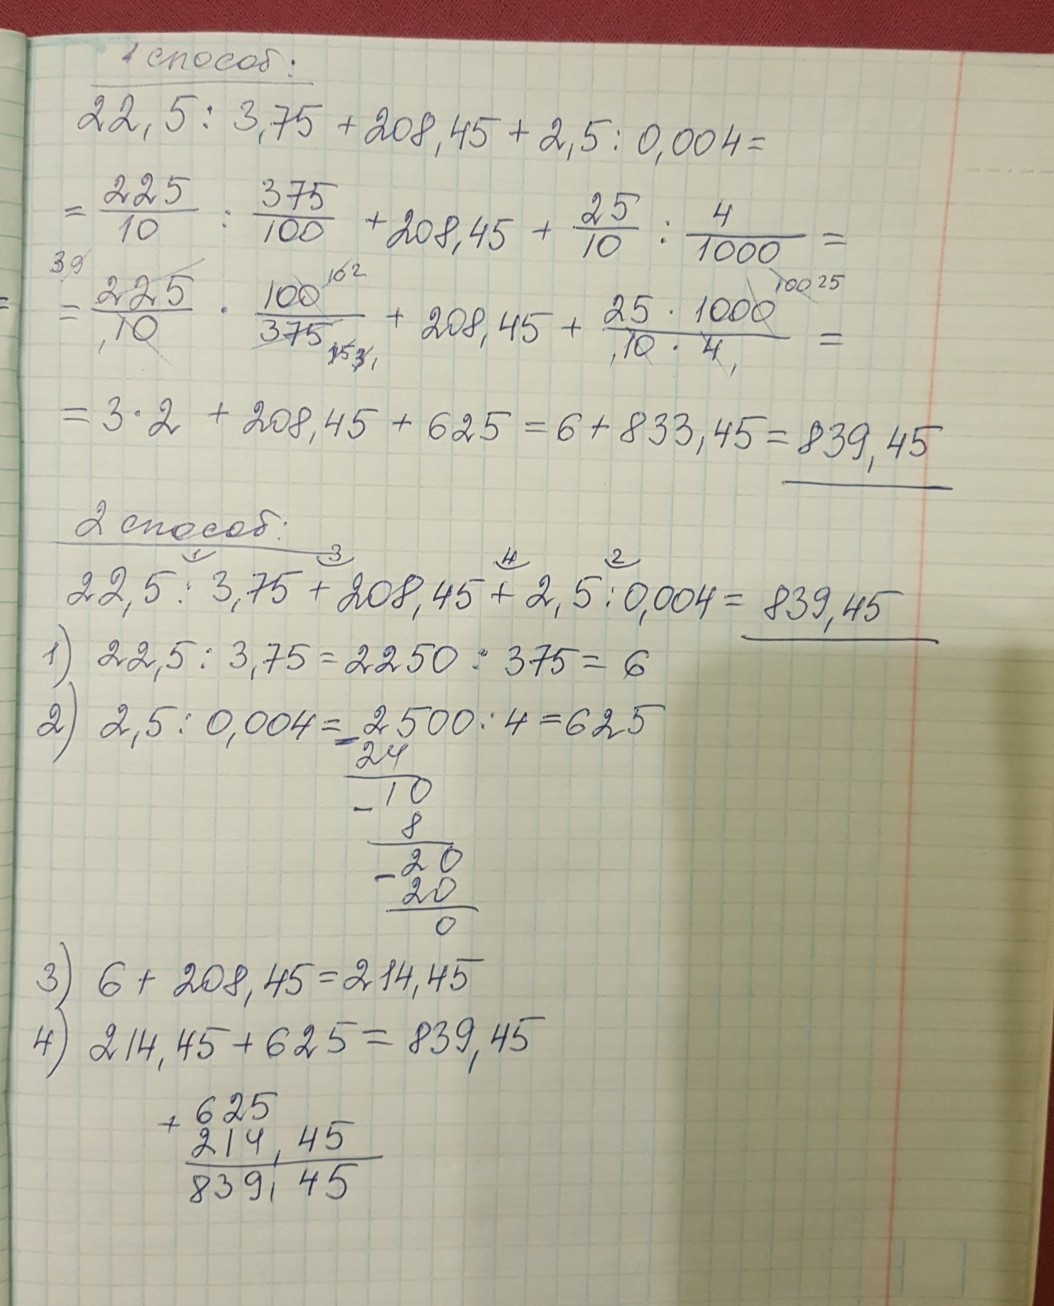 1 способ:
22,5 : 3,75 + 208,45 + 2,5 : 0,004 =
= 225/10 : 375/100 + 208,45 + 25/10 : 4/1000 =
= 225/10 · 100/375 + 208,45 + 25 · 1000/10 · 4 =
= 3 · 2 + 208,45 + 625 = 6 + 833,45 = 839,45
2 способ:
1 3 4 2
22,5 : 3,75 + 208,45 + 2,5 : 0,004 = 839,45
1) 22,5 : 3,75 = 2250 : 375 = 6
2) 2,5 : 0,004 = 2500 : 4 = 625
- 24
- 10
8
- 20
20
0
3) 6 + 208,45 = 214,45
4) 214,45 + 625 = 839,45
+ 625
214,45
839,45